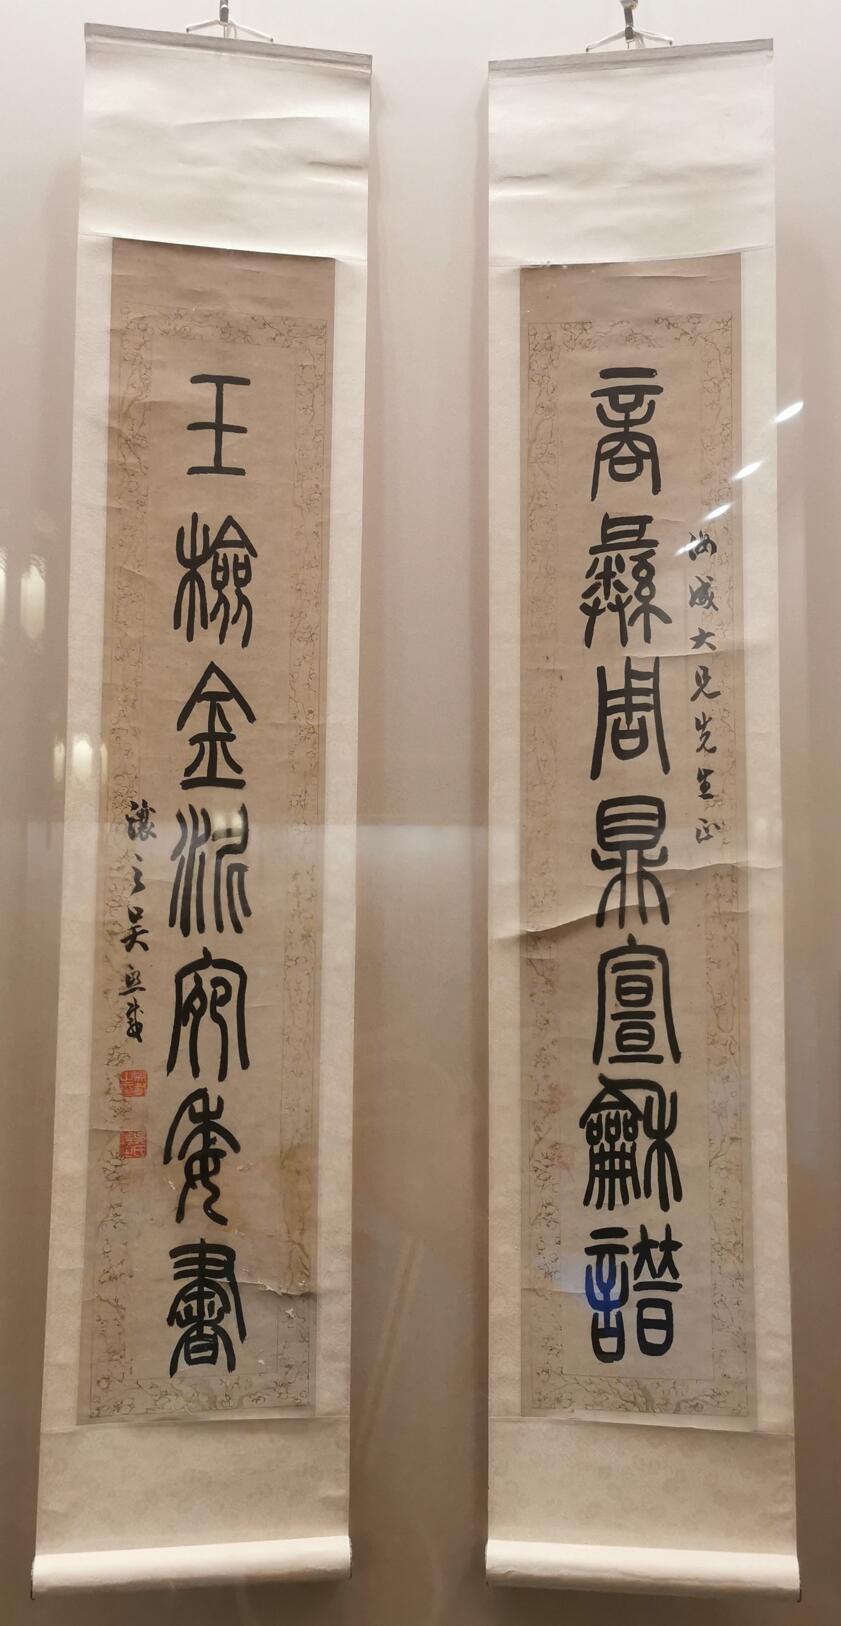 商彝周鼎宣龢譜
大兄先生正
玉檢金泥宛委書
讓之吳熙載